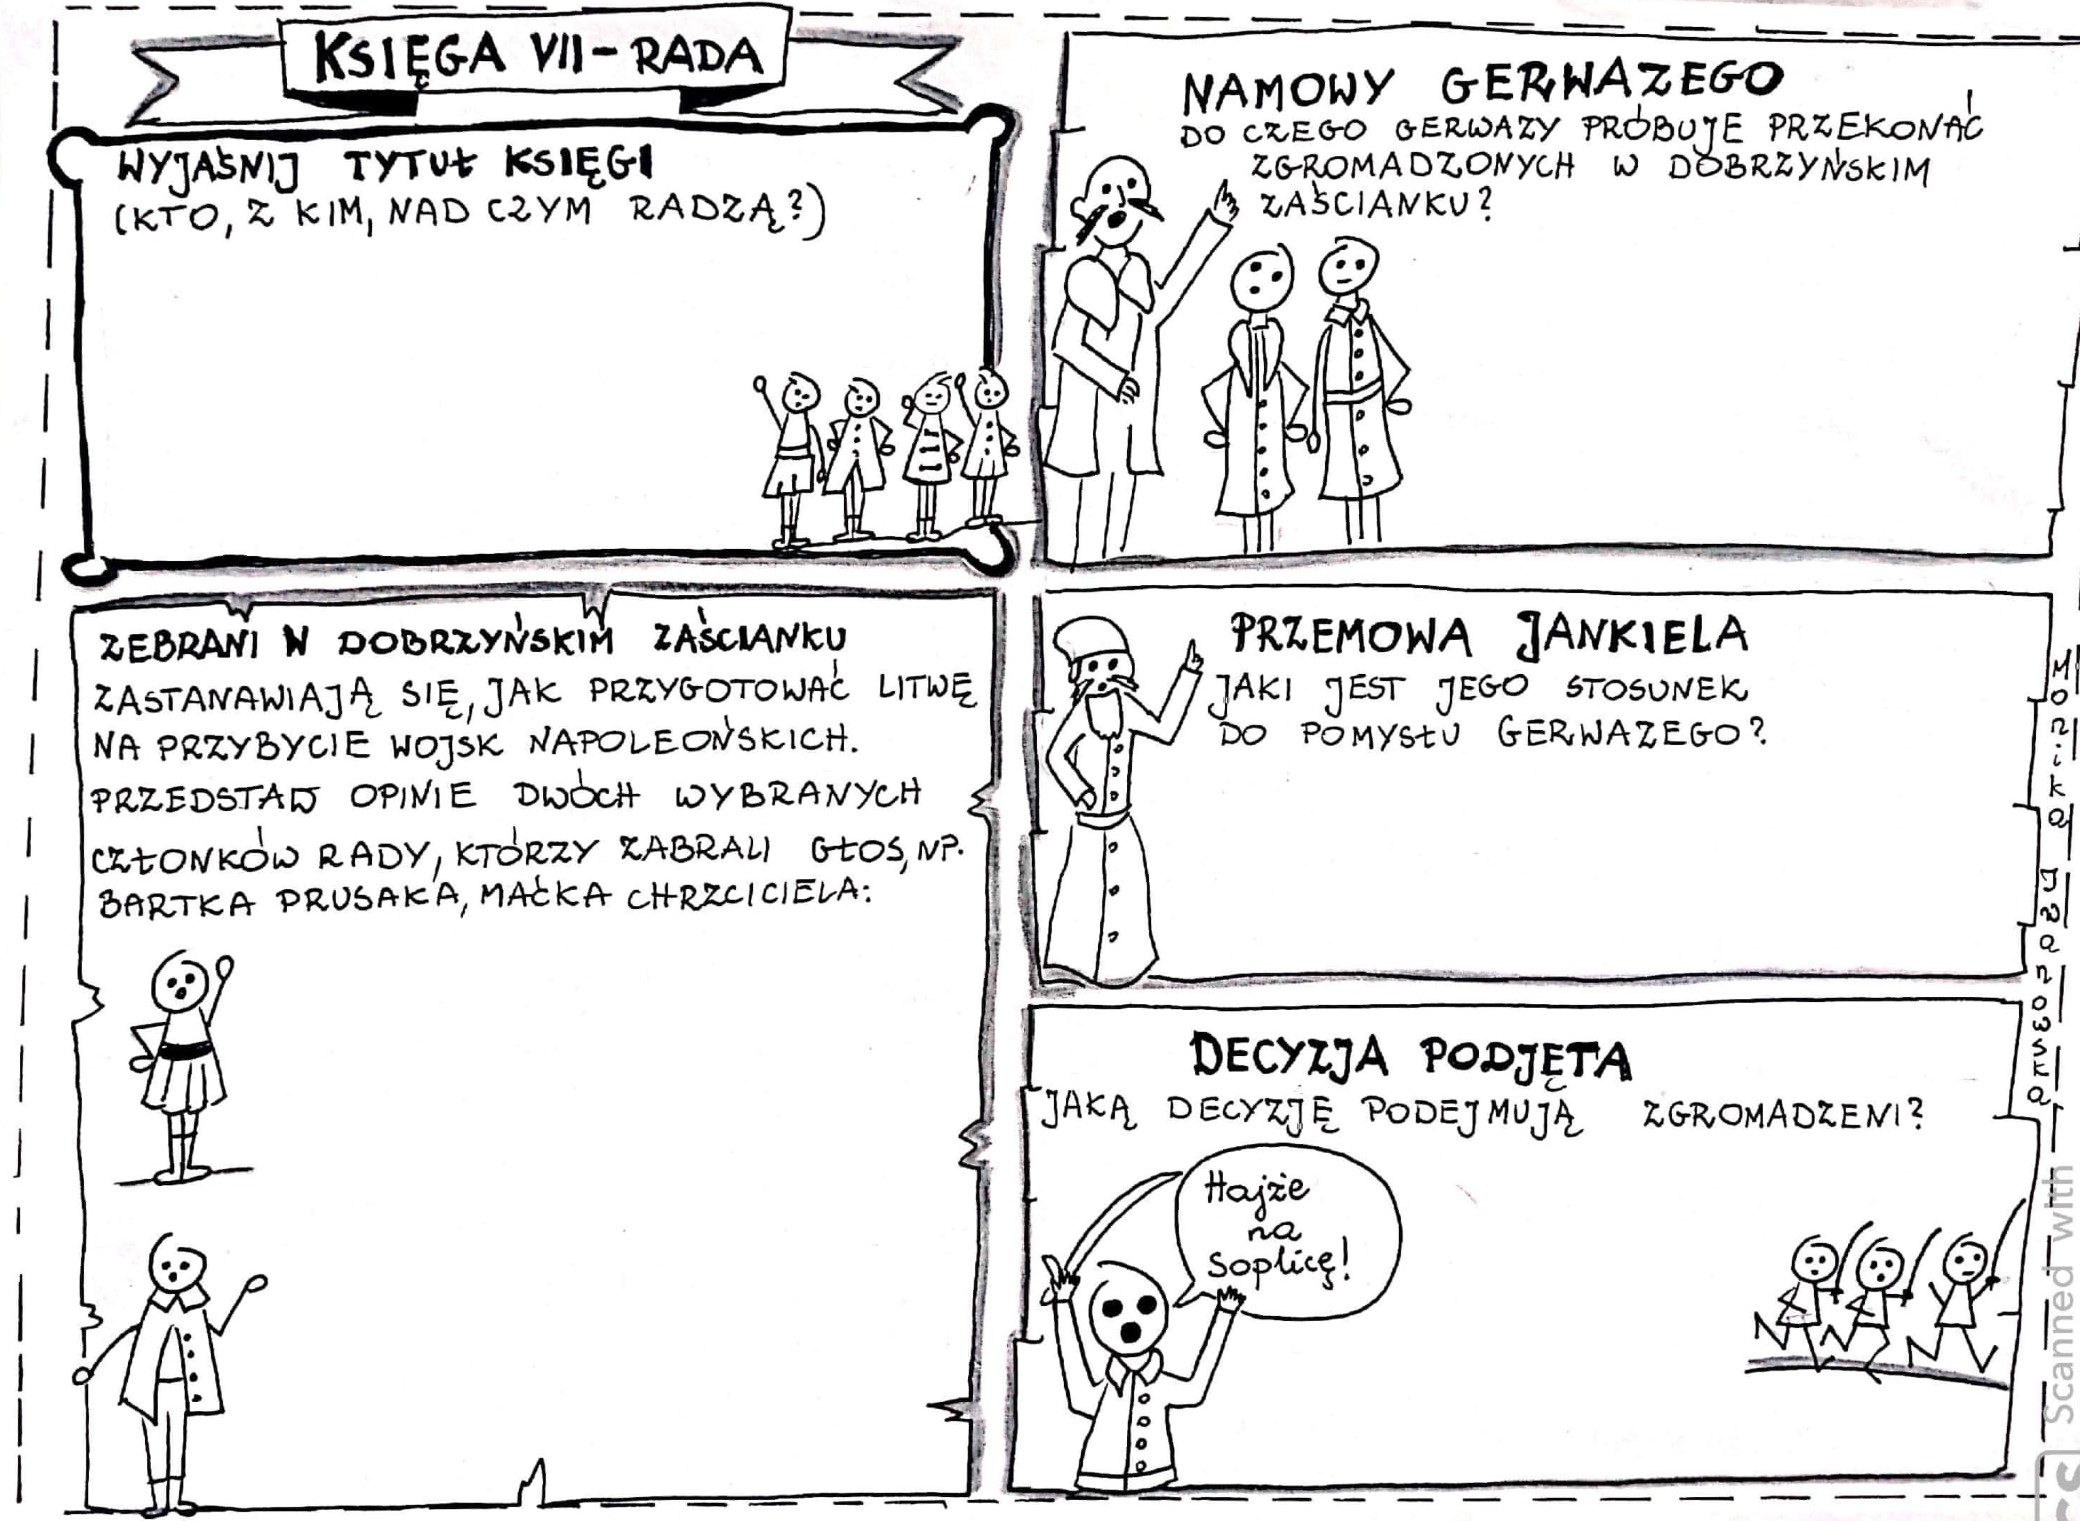 KSIĘGA VII - RADA
WYJAŚNIJ TYTUŁ KSIĘGI
(KTO, Z KIM, NAD CZYM RADZĄ?)
NAMOWY GERWAZEGO
DO CZEGO GERWAZY PRÓBUJE PRZEKONAĆ
ZGROMADZONYCH W DOBRZYŃSKIM
ZAŚCIANKU?
ZEBRANI W DOBRZYŃSKIM ZAŚCIANKU
ZASTANAWIAJĄ SIĘ, JAK PRZYGOTOWAĆ LITWĘ
NA PRZYBYCIE WOJSK NAPOLEOŃSKICH.
PRZEDSTAW OPINIE DWÓCH WYBRANYCH
CZŁONKÓW RADY, KTÓRZY ZABRALI GŁOS, NP.
BARTKA PRUSAKA, MAĆKA CHRZCICIELA:
PRZEMOWA JANKIELA
JAKI JEST JEGO STOSUNEK
DO POMYSŁU GERWAZEGO?
DECYZJA PODJĘTA
JAKĄ DECYZJĘ PODEJMUJĄ ZGROMADZENI?
Hajże
na
Soplicę!
Monika Iwanowska
Scanned with
CS